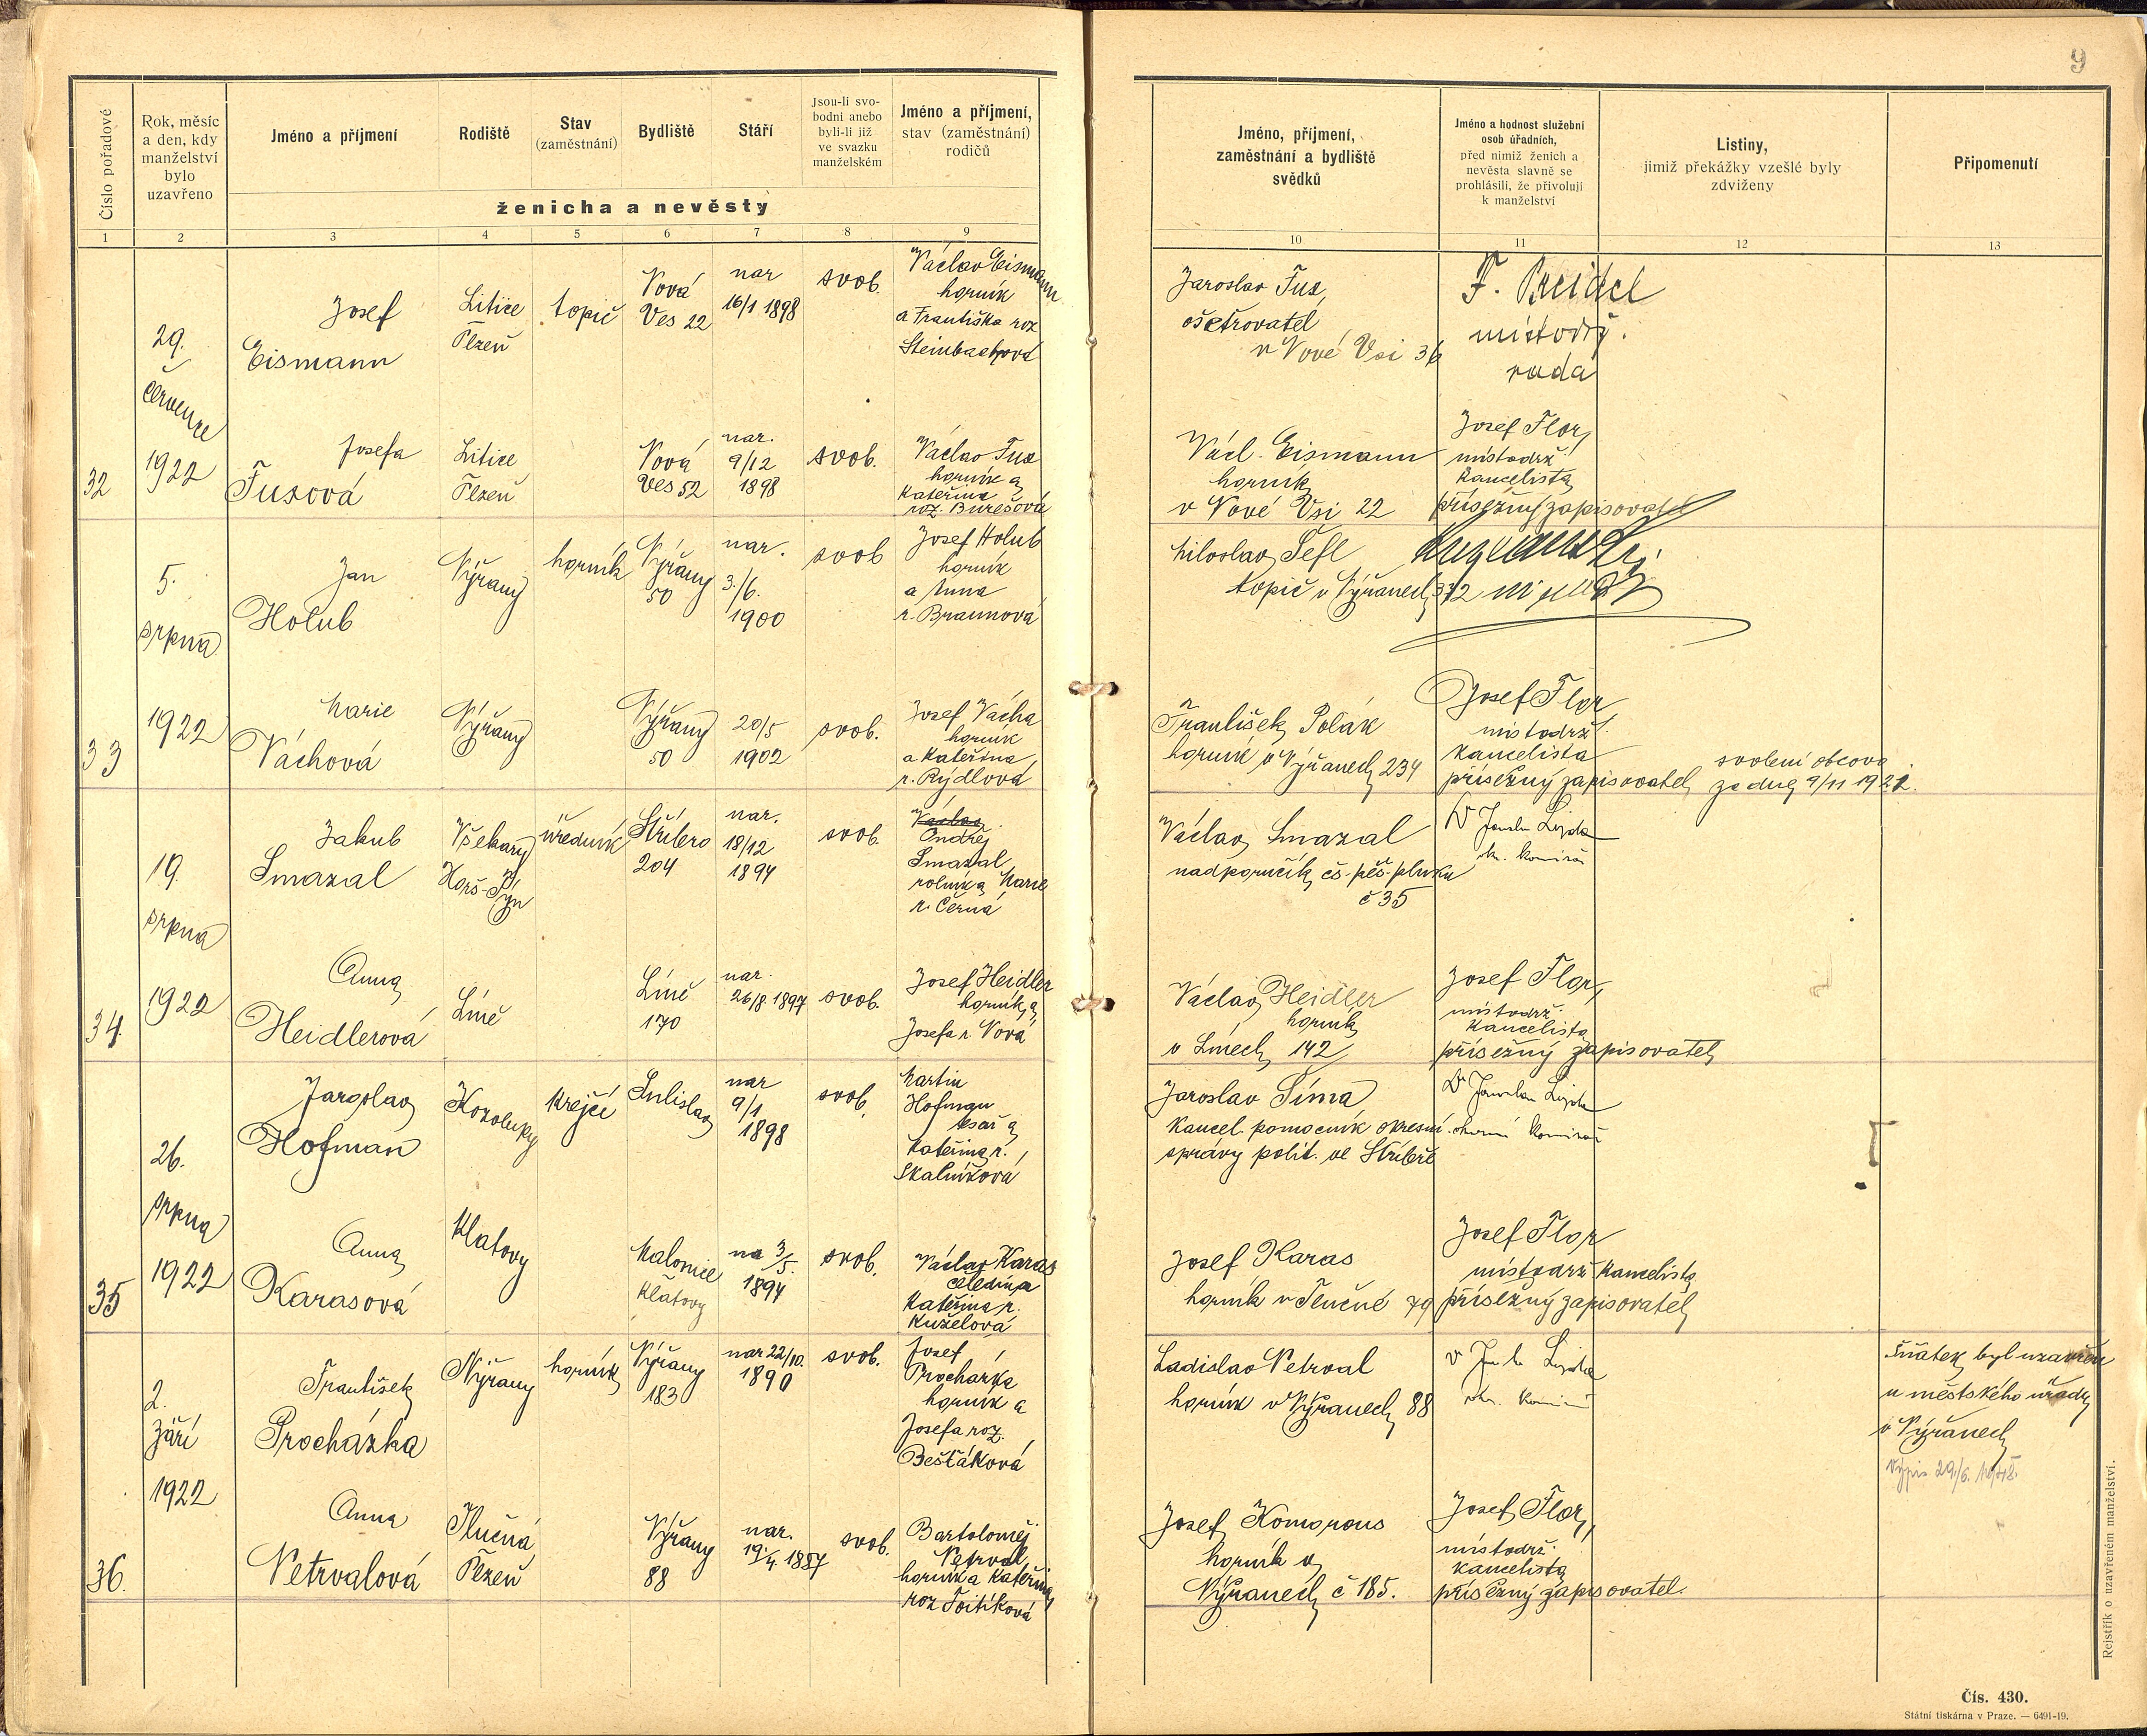 9
Číslo pořadové
Rok, měsíc
a den, kdy
manželství
bylo
uzavřeno
Jméno a příjmení
Rodiště
Stav
(zaměstnání)
Bydliště
Stáří
Jsou-li svo-
bodni anebo
byli-li již
ve svazku
manželském
Jméno a příjmení,
stav (zaměstnání)
rodičů
ženicha a nevěsty
Jméno, příjmení,
zaměstnání a bydliště
svědků
Jméno a hodnost služební
osob úřadních,
před nimiž ženich a
nevěsta slavně se
prohlásili, že přivolují
k manželství
Listiny,
jimiž překážky vzešlé byly
zdviženy
Připomenutí
1 2 3 4 5 6 7 8 9 10 11 12 13
32
29.
července
1922
Josef
Eismann
Litice
Plzeň
topič
Nová
Ves 22
nar
16/1 1898
svob.
Václav Eismann
horník
a Františka roz
Steinbachová
Jaroslav Fux,
ošetřovatel
v Nové Vsi 36
F. Breidel
místodrž.
rada
Josefa
Fuxová
Litice
Plzeň
Nová
Ves 52
nar.
9/12
1898
svob.
Václav Fux
horník a
Kateřina
roz. Burešová
Václ. Eismann
horník
v Nové Vsi 22
Josef Flor,
místodrž
kancelista
přísežný zapisovatel
33
5.
srpna
1922
Jan
Holub
Nýřany
horník
Nýřany
50
nar.
3./6.
1900
svob
Josef Holub
horník
a Anna
r. Braunová
Miloslav Šefl
topič v Nýřanech 372
Marie
Váchová
Nýřany
Nýřany
50
20/5
1902
svob.
Josef Vácha
horník
a Kateřina
r. Rýdlová
František Polák
horník v Nýřanech 234
Josef Flor
místodrž.
kancelista
přísežný zapisovatel
svolení otcovo
ze dne 9/11 1921.
34.
19.
srpna
1922
Jakub
Smazal
Všekary
Horš-Týn
úředník
Stříbro
204
nar.
18/12
1894
svob.
Václav
Ondřej
Smazal
rolník a Marie
r. Černá
Václav Smazal
nadporučík čs. pěš. pluku
č 35
Anna
Heidlerová
Líně
Líně
170
nar.
26/8. 1897
svob.
Josef Heidler
horník a
Josefa r. Nová
Václav Heidler
horník
v Línech 142
Josef Flor,
místodrž.
kancelista
přísežný zapisovatel
35
26.
srpna
1922
Jaroslav
Hofman
Kozolupy
krejčí
Sulislav
nar
9/1
1898
svob.
Martin
Hofman
Kateřina r.
Skalníková
Jaroslav Šíma
kancel. pomocník okresní
správy polit. ve Stříbře
Anna
Karasová
Klatovy
Malonice
Klatovy
na 3/5.
1894
svob.
Václav Karas
čeledín a
Kateřina r.
Kuželová
Josef Karas
horník v Tlučné 79
Josef Flor
místodrž kancelista
přísežný zapisovatel
36.
2.
září
1922
František
Procházka
Nýřany
horník
Nýřany
183
nar 22/10.
1890
svob.
Josef
Procházka
horník a
Josefa roz.
Bešťáková
Ladislav Netrval
horník v Nýřanech 88
Sňatek byl uzavřen
u městského úřadu
v Nýřanech
Anna
Netrvalová
Tlučná
Plzeň
Nýřany
88
nar.
19./4. 1887
svob.
Bartoloměj
Netrval
horník a Kateřina
roz Toitíková
Josef Komorous
horník v
Nýřanech č 185.
Josef Flor,
místodrž.
kancelista
přísežný zapisovatel.
Rejstřík o uzavřeném manželství.
Čís. 430.
Státní tiskárna v Praze. — 6491-19.